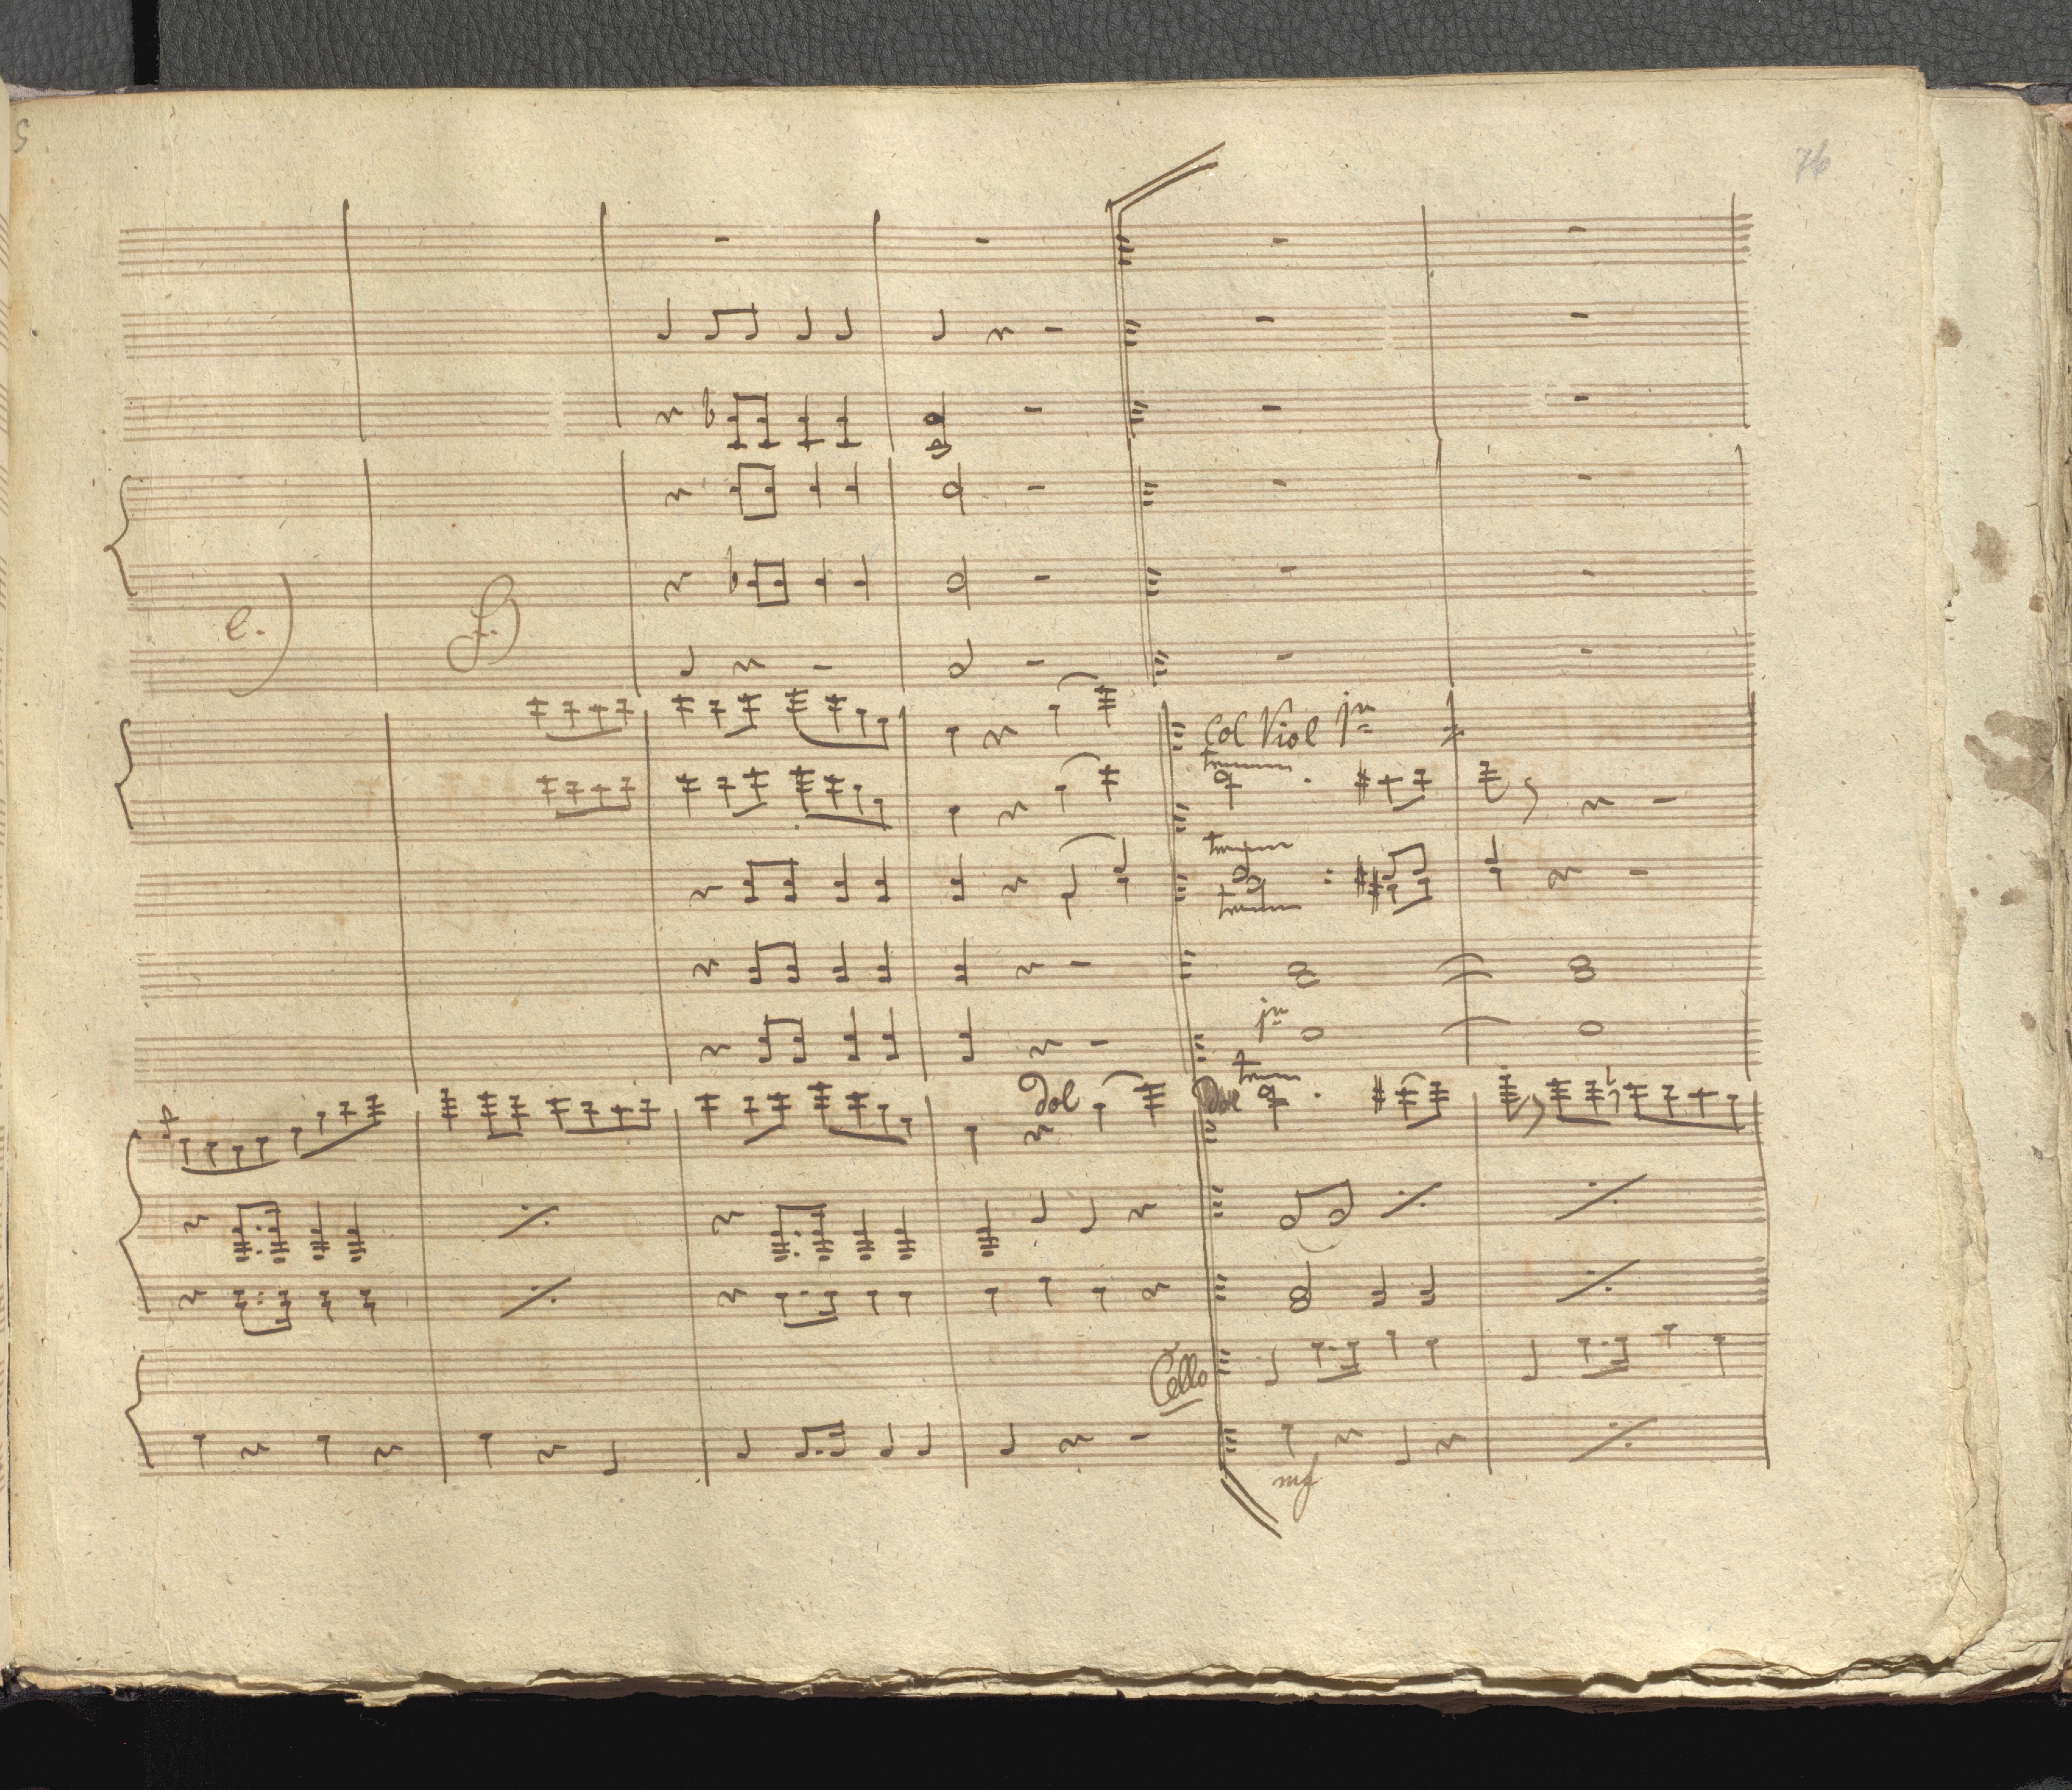 76
e.)
f.)
Col Viol 1mo
Dol
Dol
Cello
mf